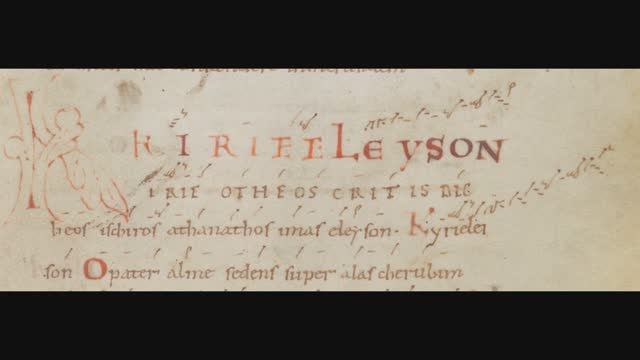 KIRIEELEYSON
IRIE OTHEOS CRITIS DIC
heos ischiros athanathos imas eleyson. Kyrielei
son O pater alme sedens super alas cherubim